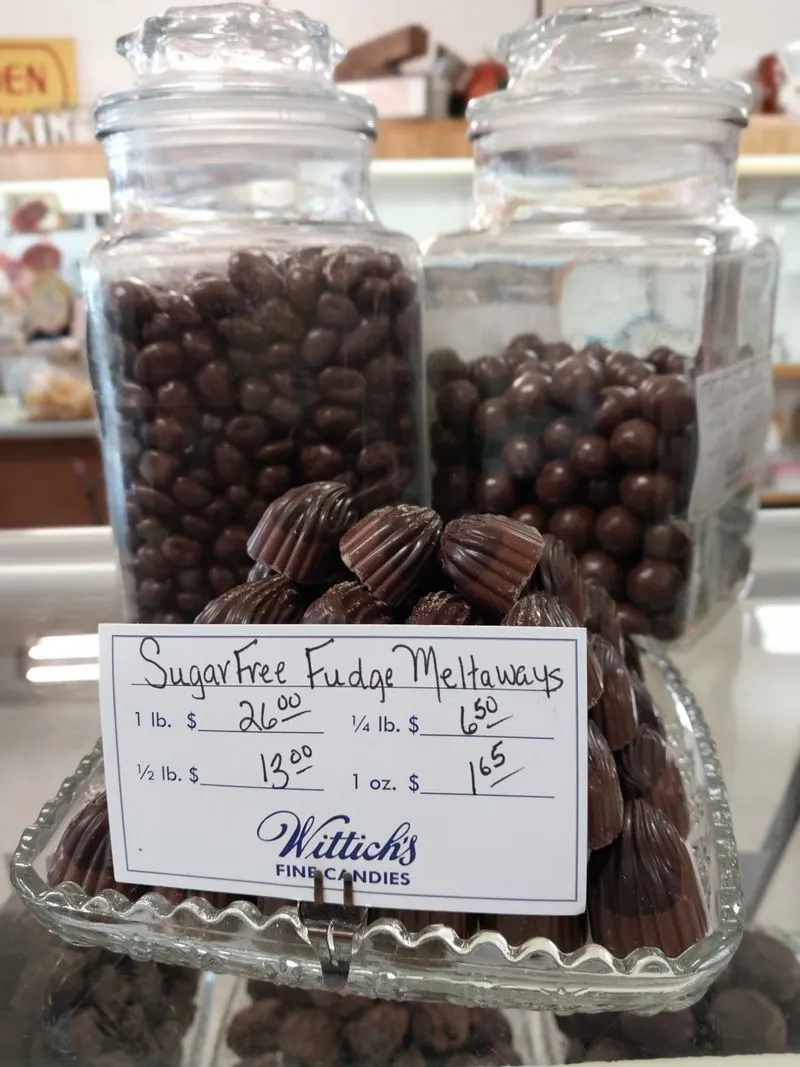 DEN
Sugar Free Fudge Meltaways
1 lb. $ 26.00 1/4 lb. $ 6.50
½ lb. $ 13.00 1 oz. $ 1.65
Wittich's
FINE CANDIES